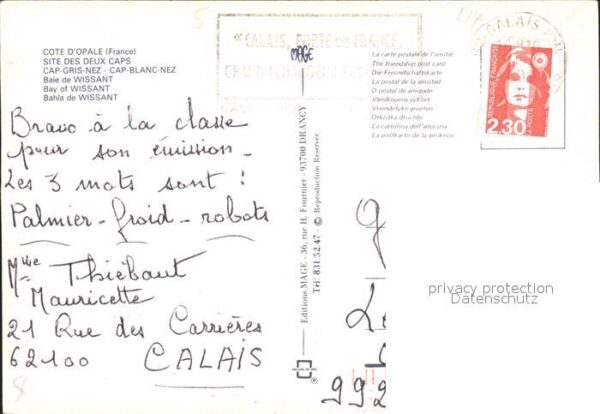 COTE D'OPALE (France)
SITE DES DEUX CAPS
CAP-GRIS-NEZ - CAP-BLANC-NEZ
Baie de WISSANT
Bay of WISSANT
Bahia de WISSANT
Bravo à la classe
pour son émission.
Les 3 mots sont !
Palmier - froid - robots
Mlle Thiébaut
Mauricette
21 Rue des Carrières
62100 CALAIS
« CALAIS, PORTE DE FRANCE,
MAGE
Editions MAGE - 36, rue H. Fournier - 93700 DRANCY
Tél: 831.52.47 - © Reproduction Réservée
La carte postale de l'amitié
The friendship post card
Die Freundschaftskarte
La postal de la amistad
O postal de amizade
Vriendelijke groeten
La cartolina dell'amicizia
CALAIS
REPUBLIQUE FRANÇAISE
2,30
LA POSTE
privacy protection
Datenschutz
992